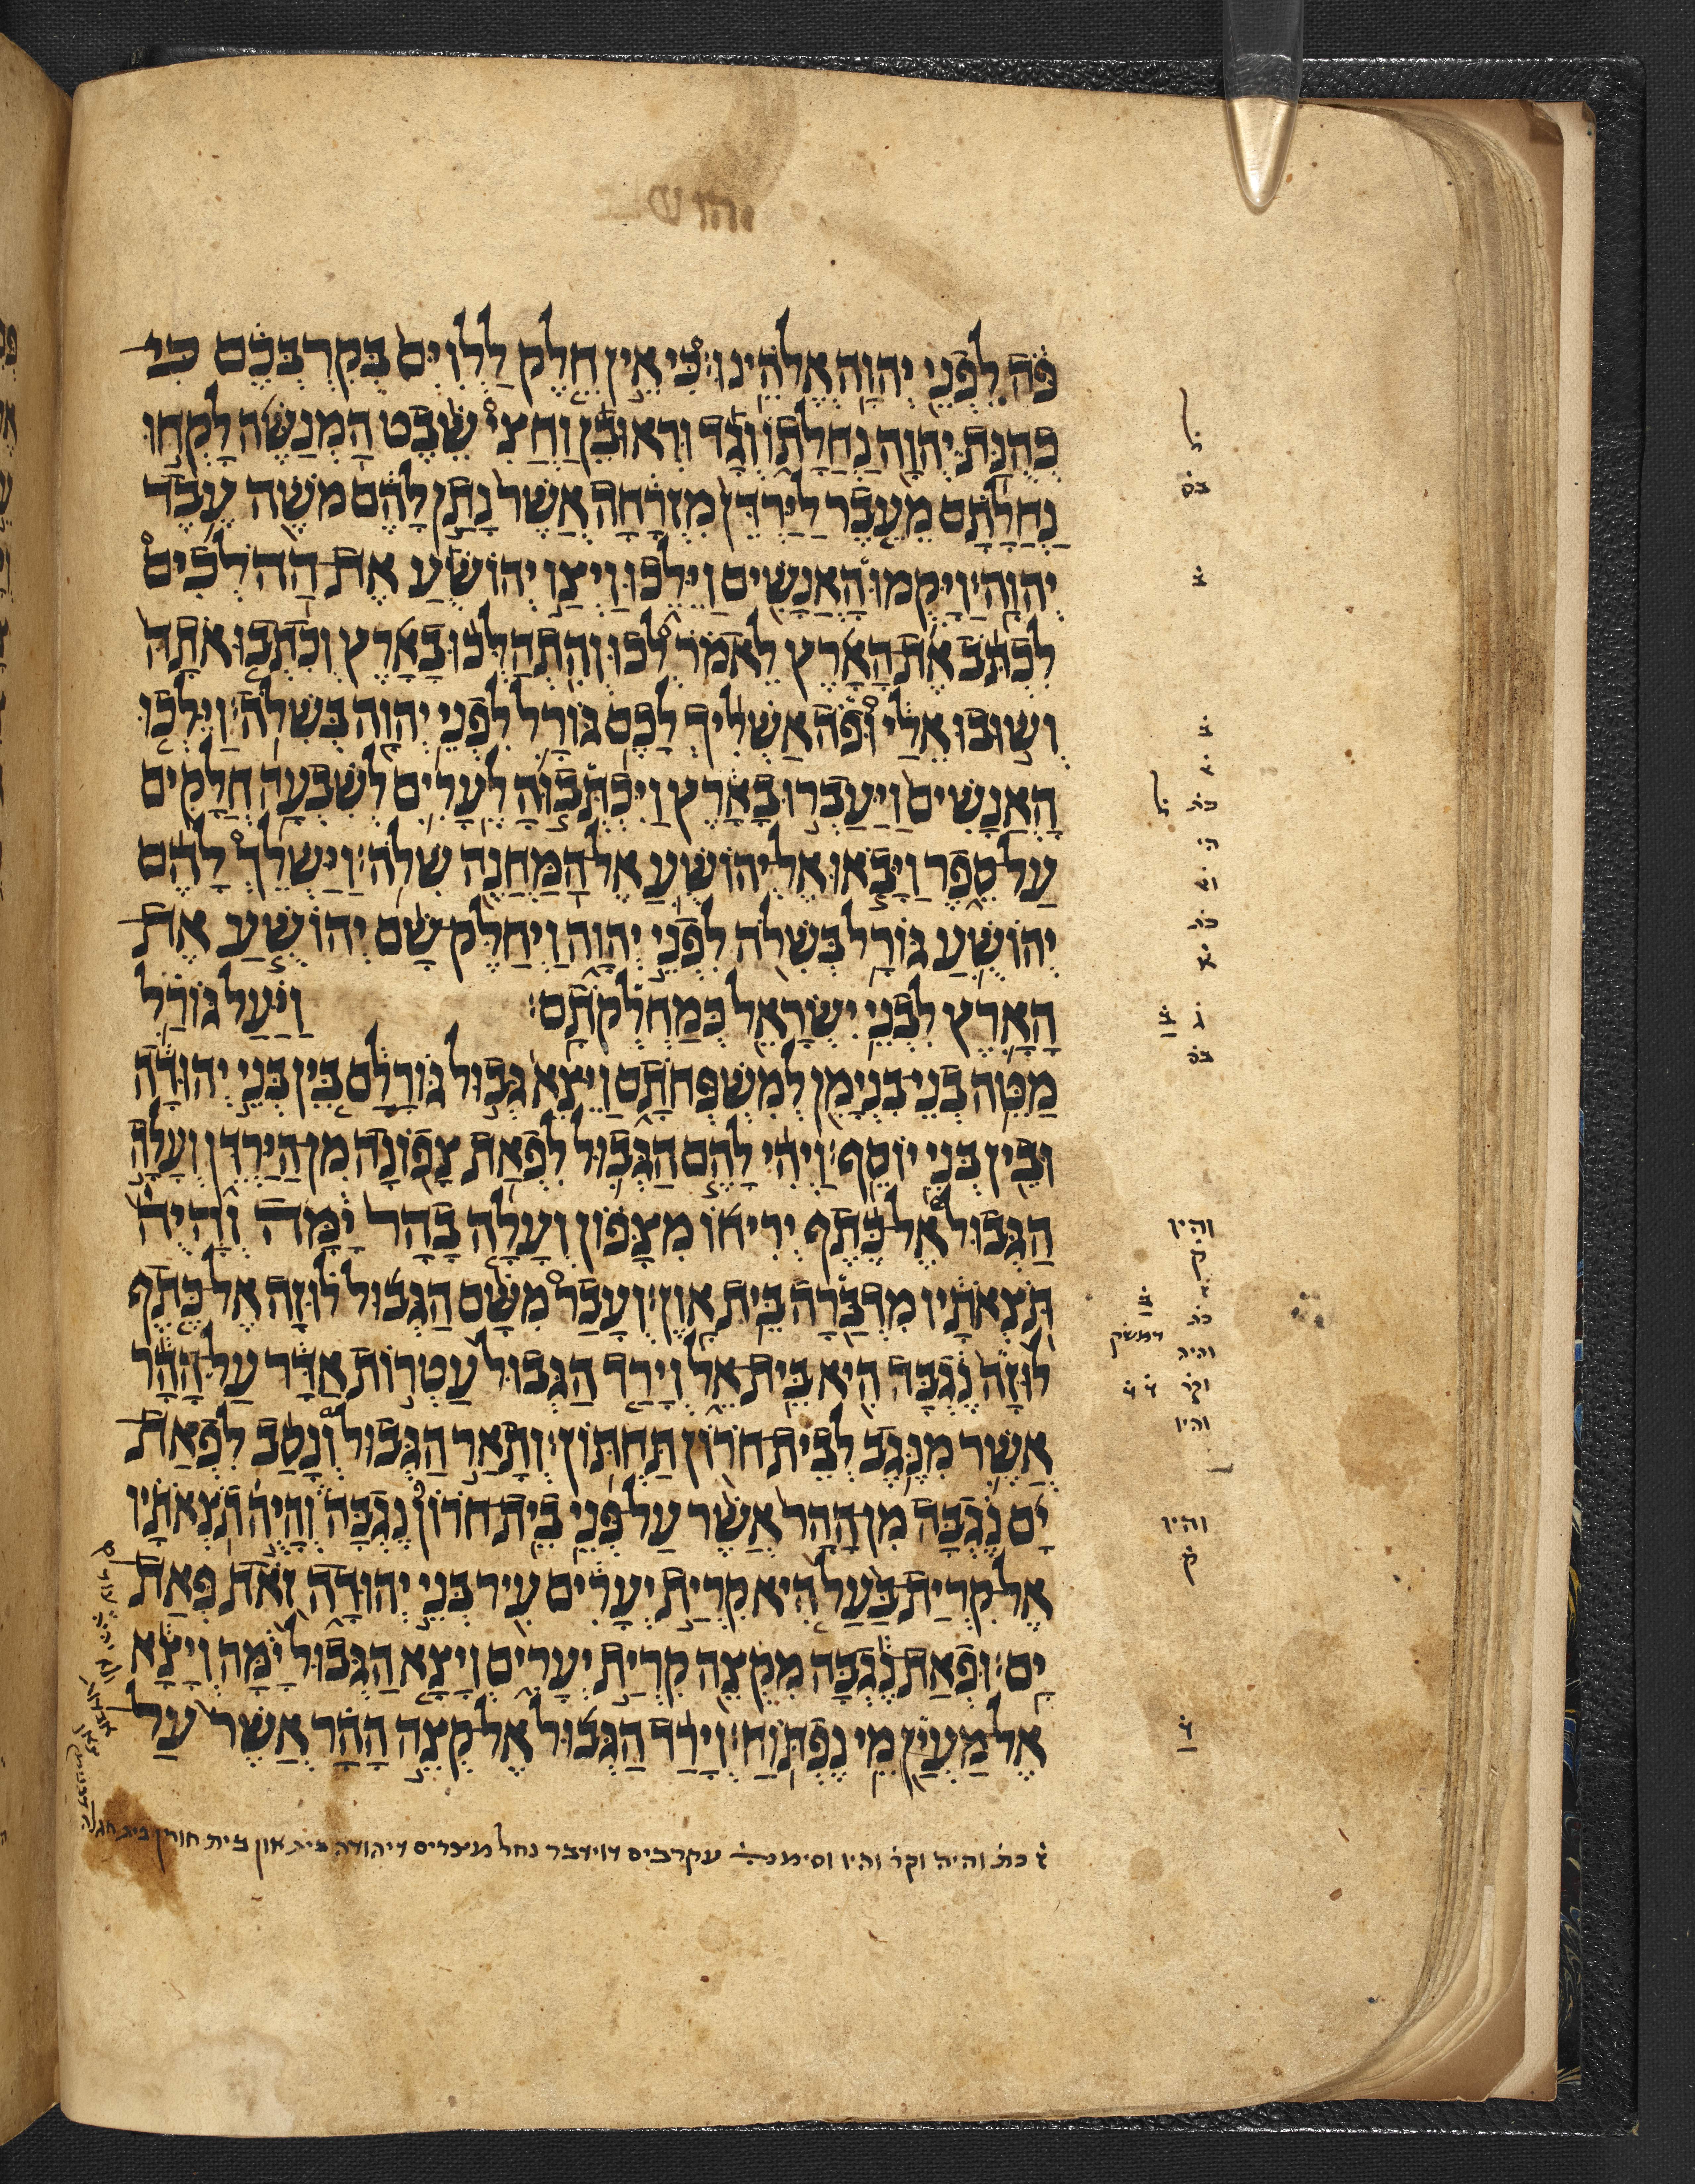 פֹּה לִפְנֵי יְהוָה אֱלֹהֵינוּ׃ כִּי אֵין חֵלֶק לַלְוִיִּם בְּקִרְבְּכֶם כִּי
כְהֻנַּת יְהוָה נַחֲלָתוֹ וְגָד וּרְאוּבֵן וַחֲצִי שֵׁבֶט הַמְנַשֶּׁה לָקְחוּ
נַחֲלָתָם מֵעֵבֶר לַיַּרְדֵּן מִזְרָחָה אֲשֶׁר נָתַן לָהֶם מֹשֶׁה עֶבֶד
יְהוָה׃ וַיָּקֻמוּ הָאֲנָשִׁים וַיֵּלֵכוּ וַיְצַו יְהוֹשֻׁעַ אֶת הַהֹלְכִים
לִכְתֹּב אֶת הָאָרֶץ לֵאמֹר לְכוּ וְהִתְהַלְּכוּ בָאָרֶץ וְכִתְבוּ אֹתָהּ
וְשׁוּבוּ אֵלַי וּפֹה אַשְׁלִיךְ לָכֶם גּוֹרָל לִפְנֵי יְהוָה בְּשִׁלֹה׃ וַיֵּלְכוּ
הָאֲנָשִׁים וַיַּעַבְרוּ בָאָרֶץ וַיִּכְתְּבוּהָ לֶעָרִים לְשִׁבְעָה חֲלָקִים
עַל סֵפֶר וַיָּבֹאוּ אֶל יְהוֹשֻׁעַ אֶל הַמַּחֲנֶה שִׁלֹה׃ וַיַּשְׁלֵךְ לָהֶם
יְהוֹשֻׁעַ גּוֹרָל בְּשִׁלֹה לִפְנֵי יְהוָה וַיְחַלֶּק שָׁם יְהוֹשֻׁעַ אֶת
הָאָרֶץ לִבְנֵי יִשְׂרָאֵל כְּמַחְלְקֹתָם׃ וַיַּעַל גּוֹרַל
מַטֵּה בְנֵי בִנְיָמִן לְמִשְׁפְּחֹתָם וַיֵּצֵא גְּבוּל גּוֹרָלָם בֵּין בְּנֵי יְהוּדָה
וּבֵין בְּנֵי יוֹסֵף׃ וַיְהִי לָהֶם הַגְּבוּל לִפְאַת צָפוֹנָה מִן הַיַּרְדֵּן וְעָלָה
הַגְּבוּל אֶל כֶּתֶף יְרִיחוֹ מִצָּפוֹן וְעָלָה בָהָר יָמָּה וְהָיֻה
תֹּצְאֹתָיו מִדְבַּרָה בֵּית אָוֶן׃ וְעָבַר מִשָּׁם הַגְּבוּל לוּזָה אֶל כֶּתֶף
לוּזָה נֶגְבָּה הִיא בֵּית אֵל וְיָרַד הַגְּבוּל עַטְרוֹת אַדָּר עַל הָהָר
אֲשֶׁר מִנֶּגֶב לְבֵית חֹרוֹן תַּחְתּוֹן׃ וְתָאַר הַגְּבוּל וְנָסַב לִפְאַת
יָם נֶגְבָּה מִן הָהָר אֲשֶׁר עַל פְּנֵי בֵית חֹרוֹן נֶגְבָּה וְהָיֻה תֹצְאֹתָיו
אֶל קִרְיַת בַּעַל הִיא קִרְיַת יְעָרִים עִיר בְּנֵי יְהוּדָה זֹאת פְּאַת
יָם׃ וּפְאַת נֶגְבָּה מִקְצֵה קִרְיַת יְעָרִים וְיָצָא הַגְּבוּל יָמָּה וְיָצָא
אֶל מַעְיַן מֵי נֶפְתּוֹחַ׃ וְיָרַד הַגְּבוּל אֶל קְצֵה הָהָר אֲשֶׁר עַל
בׄ
בׄ
כתׄ
כתׄ
והיו
קׄ
כתׄ
דמשק
והיה
וקרׄ
והיו
והיו
קׄ
כתׄ והיה וקרׄ והיו וסימנ עקרבים דוידבר נחל מצרים דיהודה בית און בית חורון בית חגלה